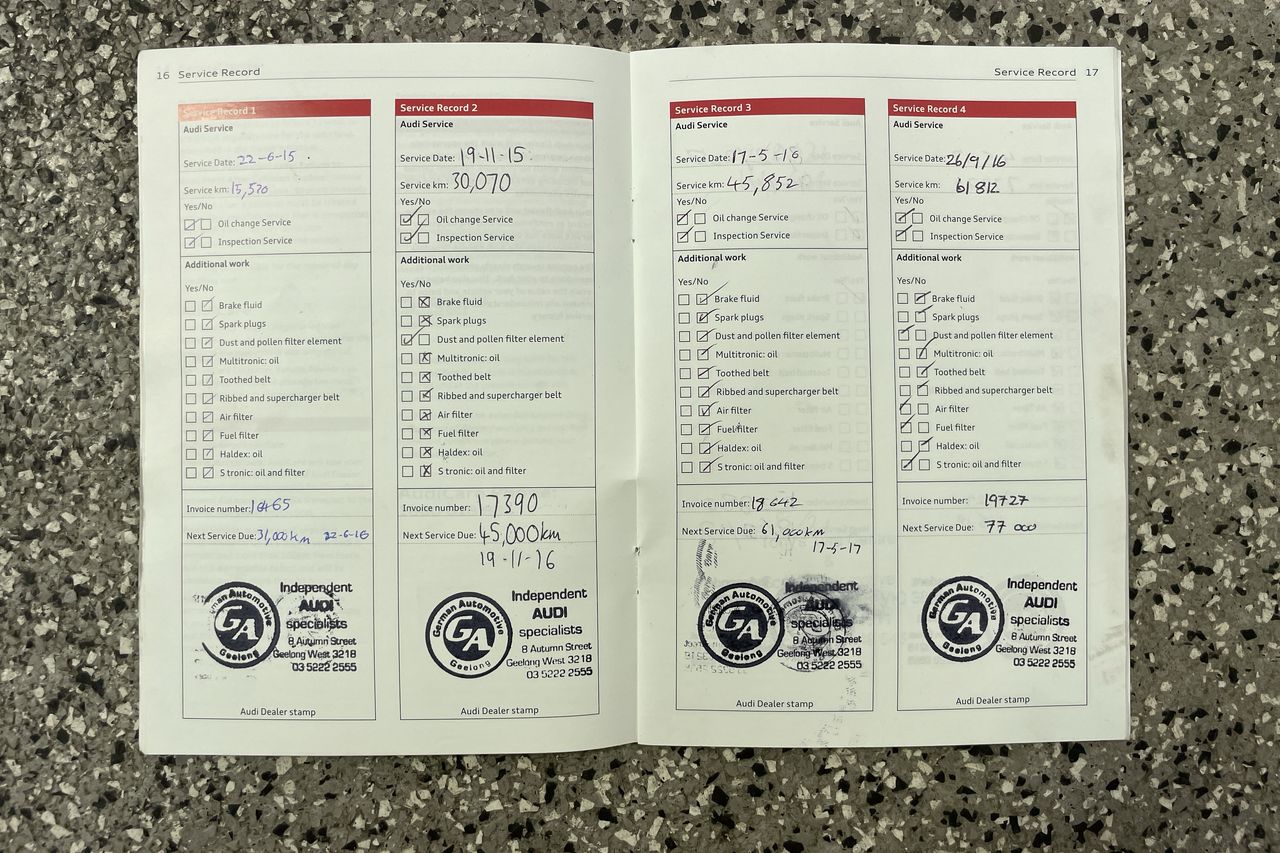 16 Service Record
Service Record 1
Audi Service
Service Date: 22-6-15
Service km: 15,520
Yes/No
Oil change Service
Inspection Service
Additional work
Yes/No
Brake fluid
Spark plugs
Dust and pollen filter element
Multitronic: oil
Toothed belt
Ribbed and supercharger belt
Air filter
Fuel filter
Haldex: oil
S tronic: oil and filter
Invoice number: 16465
Next Service Due: 31,000km 22-6-16
German Automotive
GA
Geelong
Independent
AUDI
specialists
8 Autumn Street
Geelong West 3218
03 5222 2555
Audi Dealer stamp
Service Record 2
Audi Service
Service Date: 19-11-15
Service km: 30,070
Yes/No
Oil change Service
Inspection Service
Additional work
Yes/No
Brake fluid
Spark plugs
Dust and pollen filter element
Multitronic: oil
Toothed belt
Ribbed and supercharger belt
Air filter
Fuel filter
Haldex: oil
S tronic: oil and filter
Invoice number: 17390
Next Service Due: 45,000km
19-11-16
German Automotive
GA
Geelong
Independent
AUDI
specialists
8 Autumn Street
Geelong West 3218
03 5222 2555
Audi Dealer stamp
Service Record 17
Service Record 3
Audi Service
Service Date: 17-5-16
Service km: 45,852
Yes/No
Oil change Service
Inspection Service
Additional work
Yes/No
Brake fluid
Spark plugs
Dust and pollen filter element
Multitronic: oil
Toothed belt
Ribbed and supercharger belt
Air filter
Fuel filter
Haldex: oil
S tronic: oil and filter
Invoice number: 18642
Next Service Due: 61,000km
17-5-17
German Automotive
GA
Geelong
Independent
AUDI
specialists
8 Autumn Street
Geelong West 3218
03 5222 2555
Audi Dealer stamp
Service Record 4
Audi Service
Service Date: 26/9/16
Service km: 61812
Yes/No
Oil change Service
Inspection Service
Additional work
Yes/No
Brake fluid
Spark plugs
Dust and pollen filter element
Multitronic: oil
Toothed belt
Ribbed and supercharger belt
Air filter
Fuel filter
Haldex: oil
S tronic: oil and filter
Invoice number: 19727
Next Service Due: 77 000
German Automotive
GA
Geelong
Independent
AUDI
specialists
8 Autumn Street
Geelong West 3218
03 5222 2555
Audi Dealer stamp